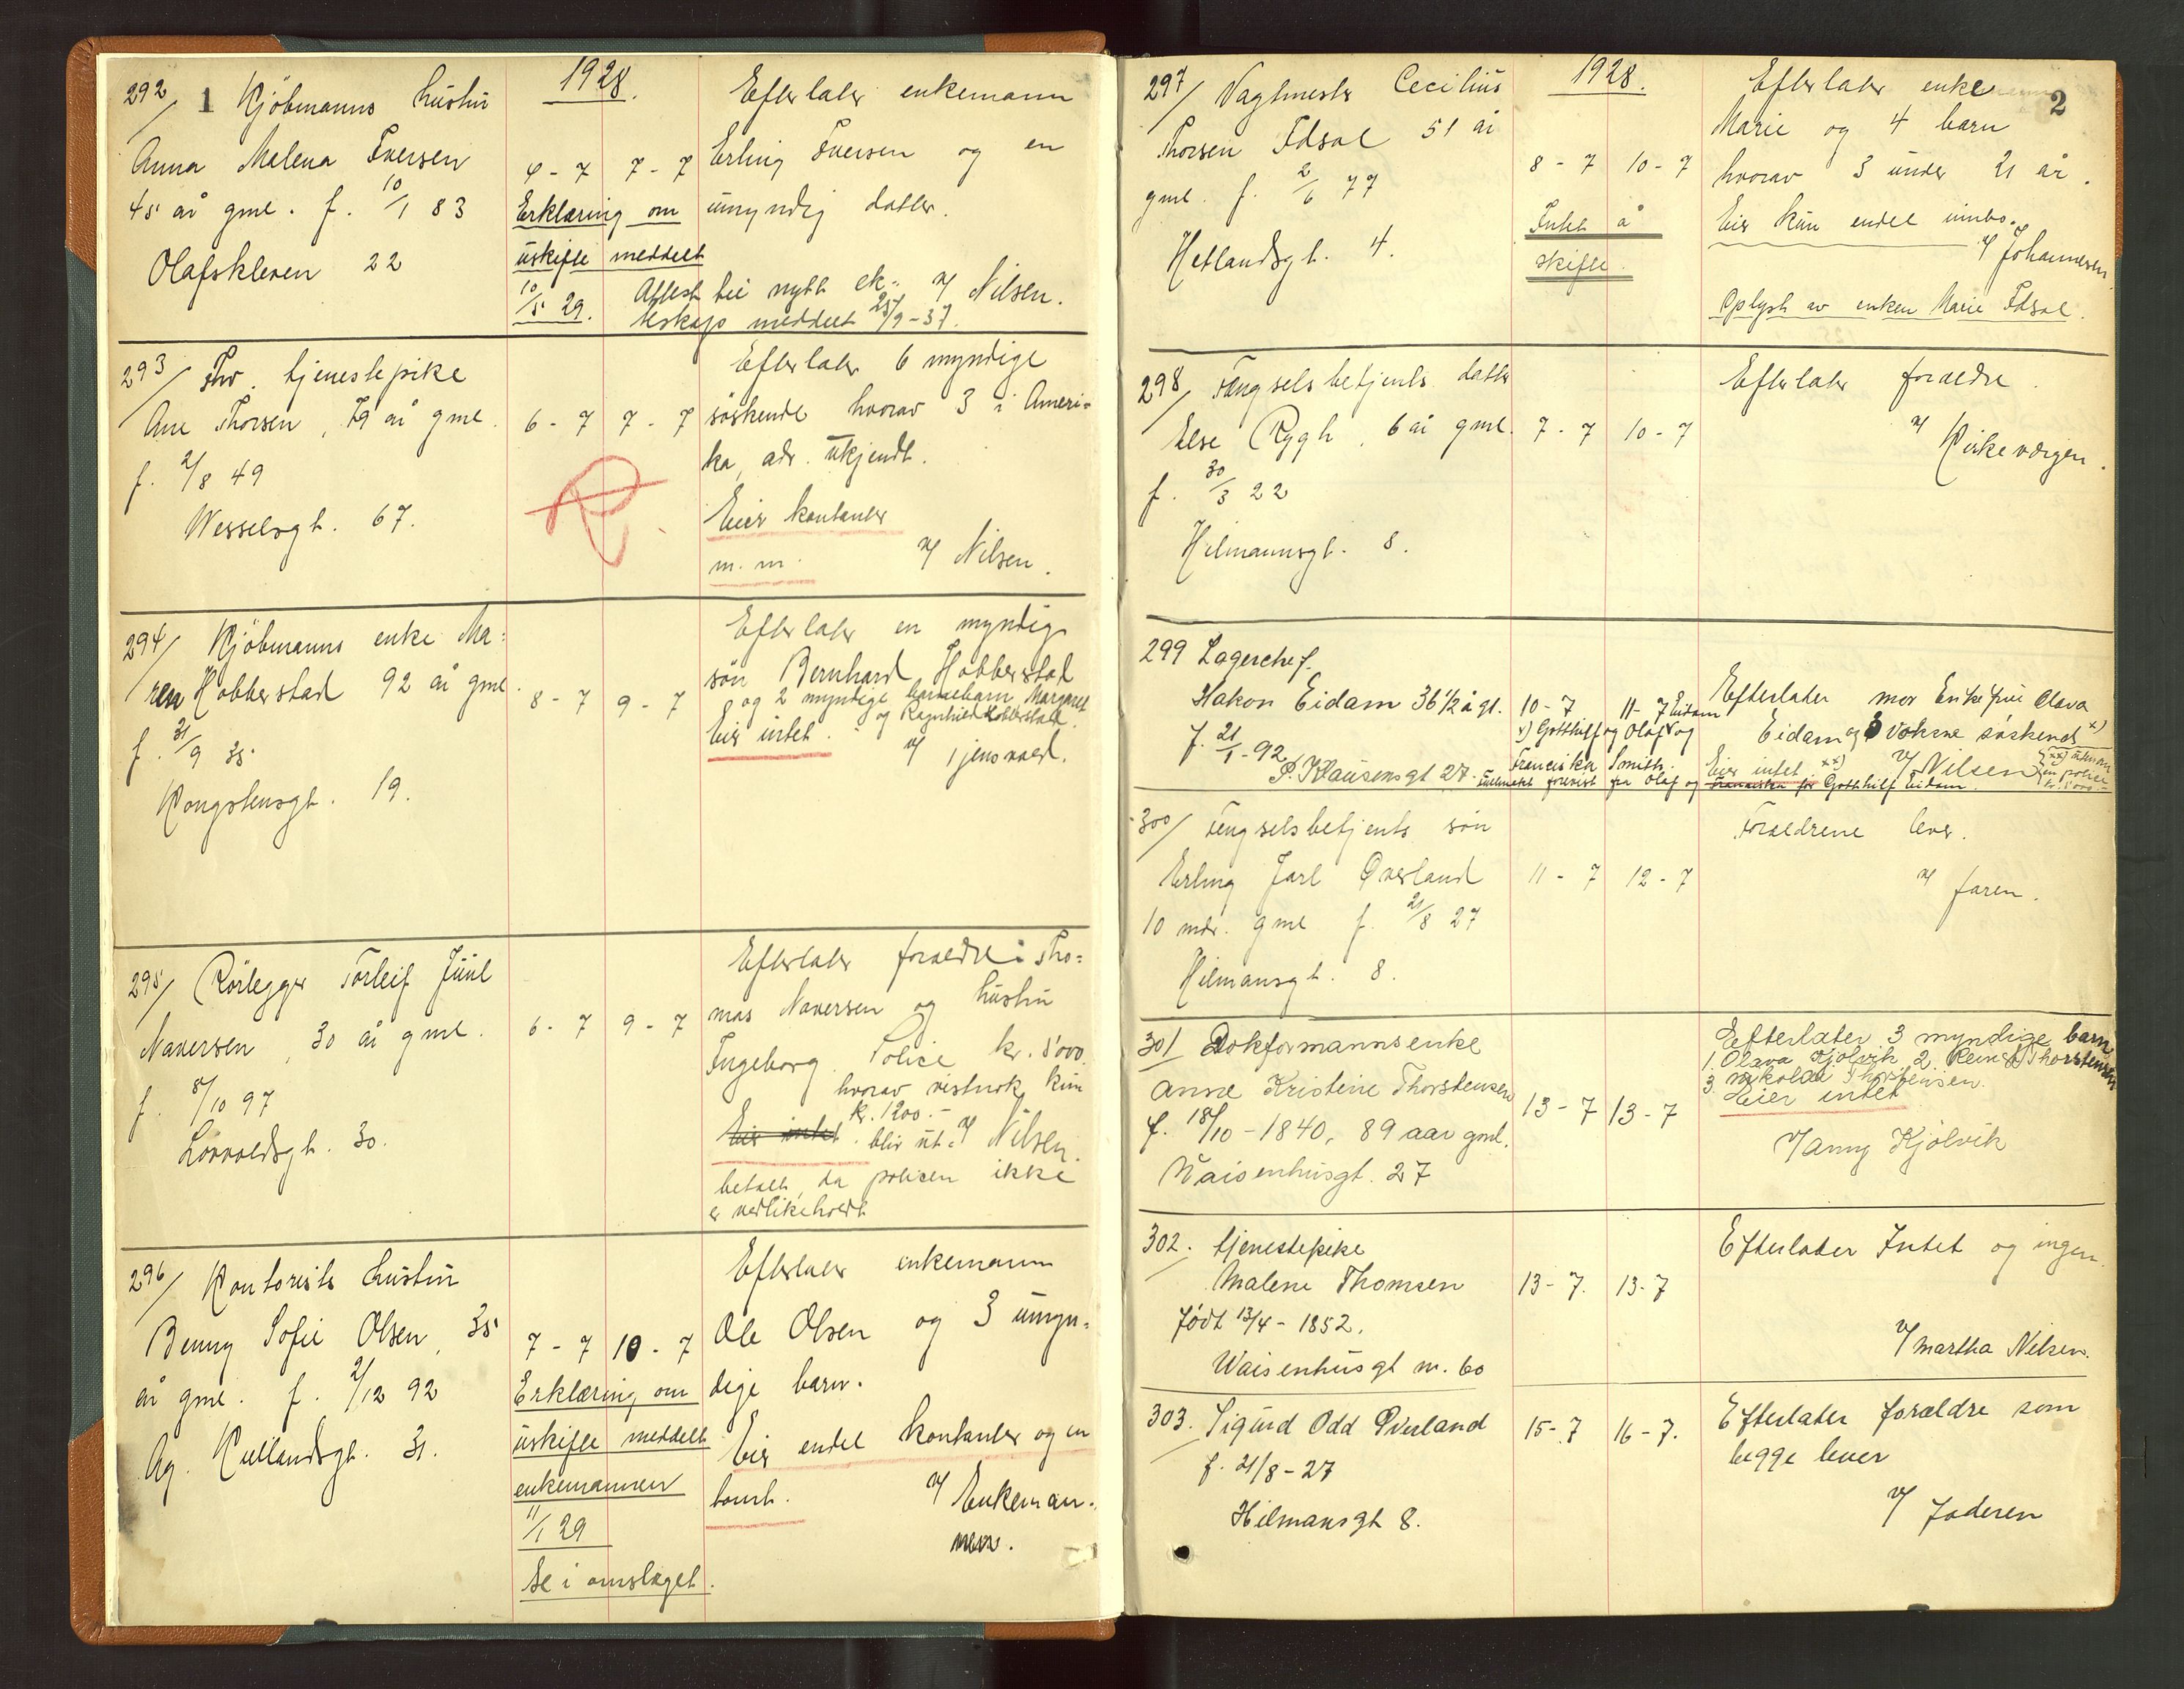 292/ 1 Kjöbmanns hustru
Anna Malena Iversen
45 år gml. f. 10/1 83
Olafskleven 22
1928.
4 - 7 7 - 7
Erklæring om
uskifte meddelt
10/5 29.
Efterlater enkemann
Erling Iversen og en
umyndig datter.
v/ Nilsen.
Attest til nytt ek-
teskap meddelt 25/9-37.
293/ Fhv. tjenestepike
Ane Thorsen, 79 år gml.
f. 2/8 49
Wesselsgt. 67.
6 - 7 7 - 7
Efterlater 6 myndige
söskende hvorav 3 i Ameri-
ka, adr. ukjendt.
Eier kontanter
m. m. v/ Nilsen.
294/ Kjöbmanns enke Ma-
ren Hobberstad 92 år gml.
f. 21/9 35
Kongstensgt. 19.
8 - 7 9 - 7
Efterlater en myndig
sön Bernhard Hobberstad
og 2 myndige barnebarn Margaret
og Ragnhild Hobberstad.
Eier intet. v/
295/ Rörlegger Torleif Juul
Naversen, 30 år gml.
f. 8/10 97
Lövvoldsgt. 30.
6 - 7 9 - 7
Efterlater forældre: Tho-
mas Naversen og hustru
Ingeborg. Police kr. 5000
hvorav vistnok kun
kr. 1200.-
Eier intet. bliv ut- v/ Nilsen.
betalt, da policen ikke
er vedlikeholdt
296/ Kontorists hustru
Benny Sofie Olsen, 35
år gml. f. 2/12 92
Ag. Kiellandsgt. 31.
7 - 7 10 - 7
Erklæring om
uskifte meddelt
enkemannen
11/1 29
Se i omslaget.
Efterlater enkemann
Ole Olsen og 3 umyn-
dige barn.
Eier endel kontanter og en
tomt. v/ Enkeman-
nen.
297/ Vagtmester Cecilius
Thorsen Idsal 51 år
gml. f. 2/6 77
Hetlandsgt. 4.
1928.
8 - 7 10 - 7
Intet å
skifte.
2
Efterlater enke
Marie og 4 barn
hvorav 3 under 21 år.
Eier kun endel innbo.
v/ Johannesen
Oplyst av enken Marie Idsal.
298/ Fengselsbetjents datter
Else Rygh, 6 år gml.
f. 30/3 22
Hilmannsgt. 8.
7 - 7 10 - 7
Efterlater forældre.
v/ Kirkevergen.
299 Lagerchef.
Hakon Eidam 36 1/2 å gl.
f. 21/1 - 92
P. Klausensgt 27.
10 - 7 11 - 7
x) Gotthilf og Olaf Eidam og
Franciska Smith.
Efterlater mor Enkefru Olava
Eidam og 3 voksne söskend x)
Eier intet xx) v/ Nilsen
xx) utenom
en police
kr. 1000.-
fra Olaf og Franciska for Gotthilf Eidam.
300/ Fengselsbetjents sön
Erling Jarl Överland
10 mdr. gml f. 21/8 27
Hilmansgt. 8.
11 - 7 12 - 7
Forældrene lever.
v/ faren.
301/ Dokformannsenke
Anne Kristine Thorstensen
f. 18/10 - 1840, 89 aar gml.
Waisenhusgt. 27
13 - 7 13 - 7
Efterlater 3 myndige barn
1. Olava Kjölvik 2. Reinert Thorstensen
3. Nikolai Thorstensen.
Eier intet
v/ Anny Kjölvik
302. tjenestepike
Malene Thomsen
Født 13/4 - 1852.
Waisenhusgt nr. 60
13 - 7. 13 - 7
Efterlater Intet og ingen.
v/ Martha Nilsen.
303. Sigurd Odd Överland
f. 21/8 - 27
Hilmansgt 8.
15 - 7 16 - 7.
Efterlater forældre som
begge lever
v/ Faderen